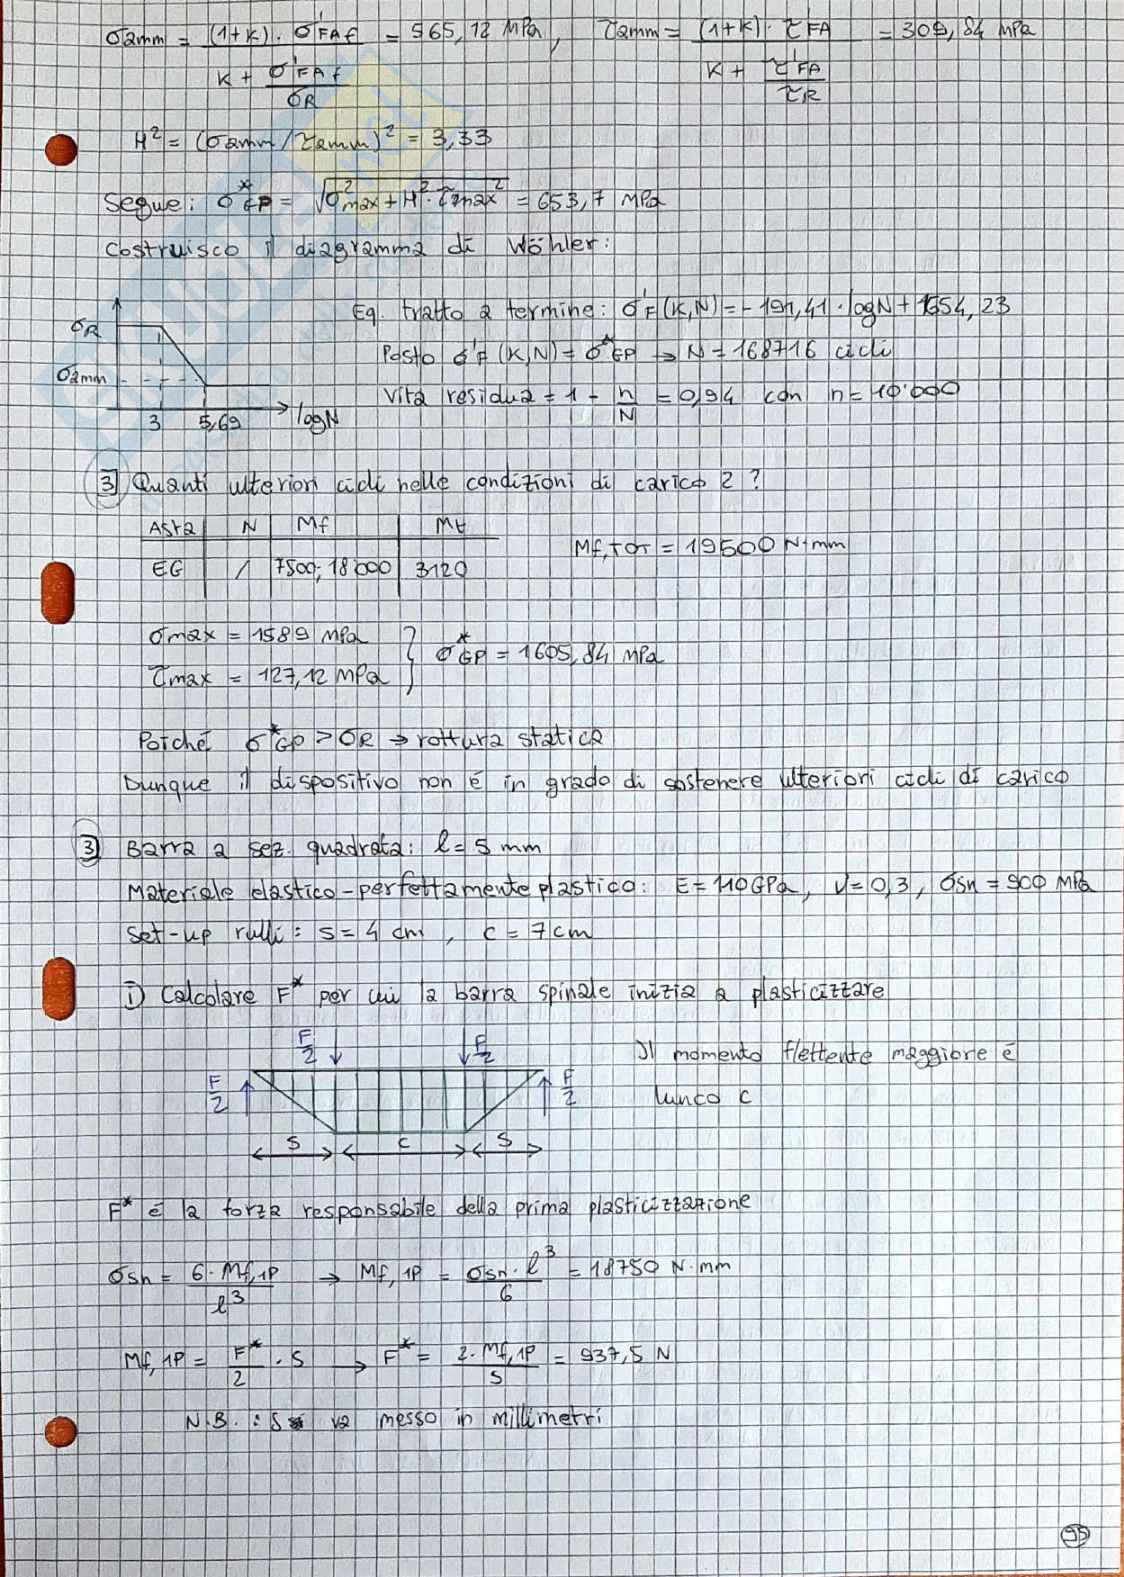 σamm = (1+K)·σ'FAf / (K + σ'FAf/σR) = 565,12 MPa, τamm = (1+K)·τ'FA / (K + τ'FA/τR) = 309,84 MPa
H² = (σamm/τamm)² = 3,33
Segue: σ*GP = √(σ²max + H²·τmax²) = 653,7 MPa
Costruisco il diagramma di Wöhler:
σR
σamm
3 5,69 logN
Eq. tratto a termine: σ'F(K,N) = -191,41·logN + 1654,23
Posto σ'F(K,N) = σ*GP → N = 168716 cicli
Vita residua = 1 - n/N = 0,94 con n = 10'000
3 Quanti ulteriori cicli nelle condizioni di carico 2?
Asta N Mf Mt
EG / 7500; 18'000 3120
Mf,TOT = 19500 N·mm
σmax = 1589 MPa
τmax = 127,12 MPa
} σ*GP = 1605,84 MPa
Poiché σ*GP > σR → rottura statica
Dunque il dispositivo non è in grado di sostenere ulteriori cicli di carico
3 Barra a sez. quadrata: l = 5 mm
Materiale elastico-perfettamente plastico: E = 110 GPa, ν = 0,3, σsn = 900 MPa
Set-up rulli: s = 4 cm, c = 7 cm
1) Calcolare F* per cui la barra spinale inizia a plasticizzare
F/2 F/2
F/2 F/2
s c s
Il momento flettente maggiore è
lungo c
F* è la forza responsabile della prima plasticizzazione
σsn = 6·Mf,1P / l³ → Mf,1P = σsn·l³ / 6 = 18750 N·mm
Mf,1P = F*/2 · s → F* = 2·Mf,1P / s = 937,5 N
N.B.: s va messo in millimetri
95